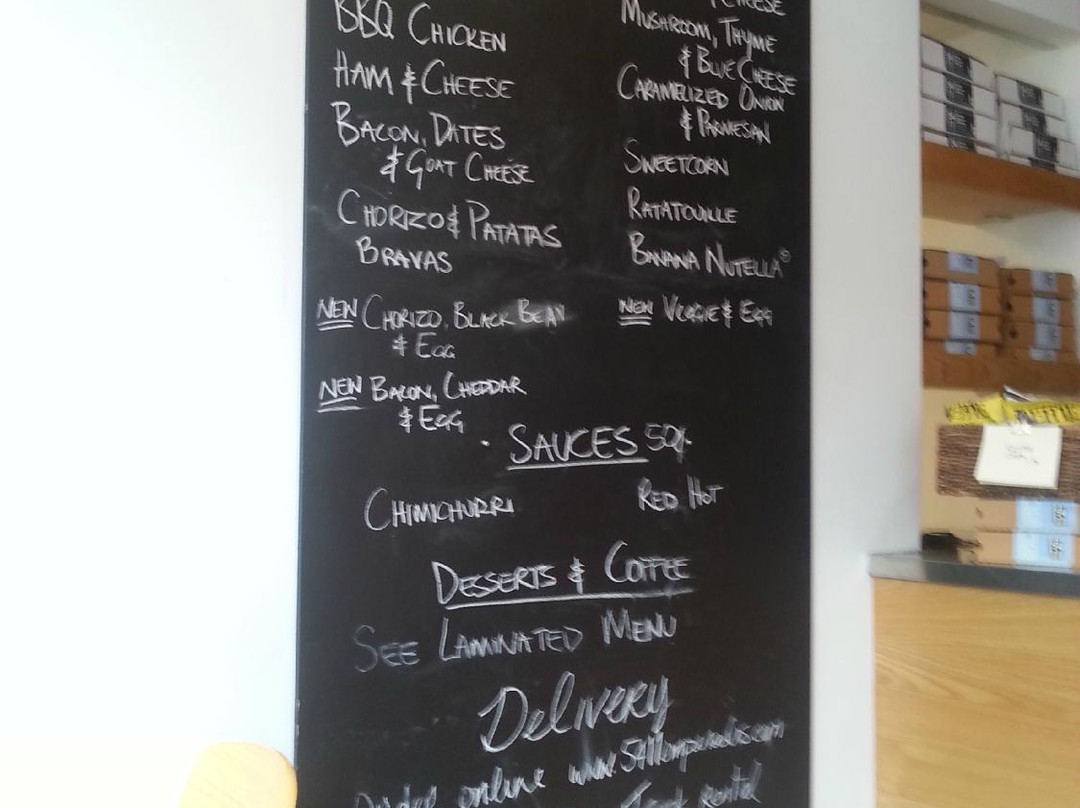 BBQ CHICKEN
HAM & CHEESE
BACON, DATES
& GOAT CHEESE
CHORIZO & PATATAS
BRAVAS
NEW CHORIZO, BLACK BEAN
& EGG
NEW BACON, CHEDDAR
& EGG
CHEESE
MUSHROOM, THYME
& BLUE CHEESE
CARAMELIZED ONION
& PARMESAN
SWEETCORN
RATATOUILLE
BANANA NUTELLA®
NEW VEGGIE & EGG
SAUCES 50¢
CHIMICHURRI
RED HOT
DESSERTS & COFFEE
SEE LAMINATED MENU
Delivery
online